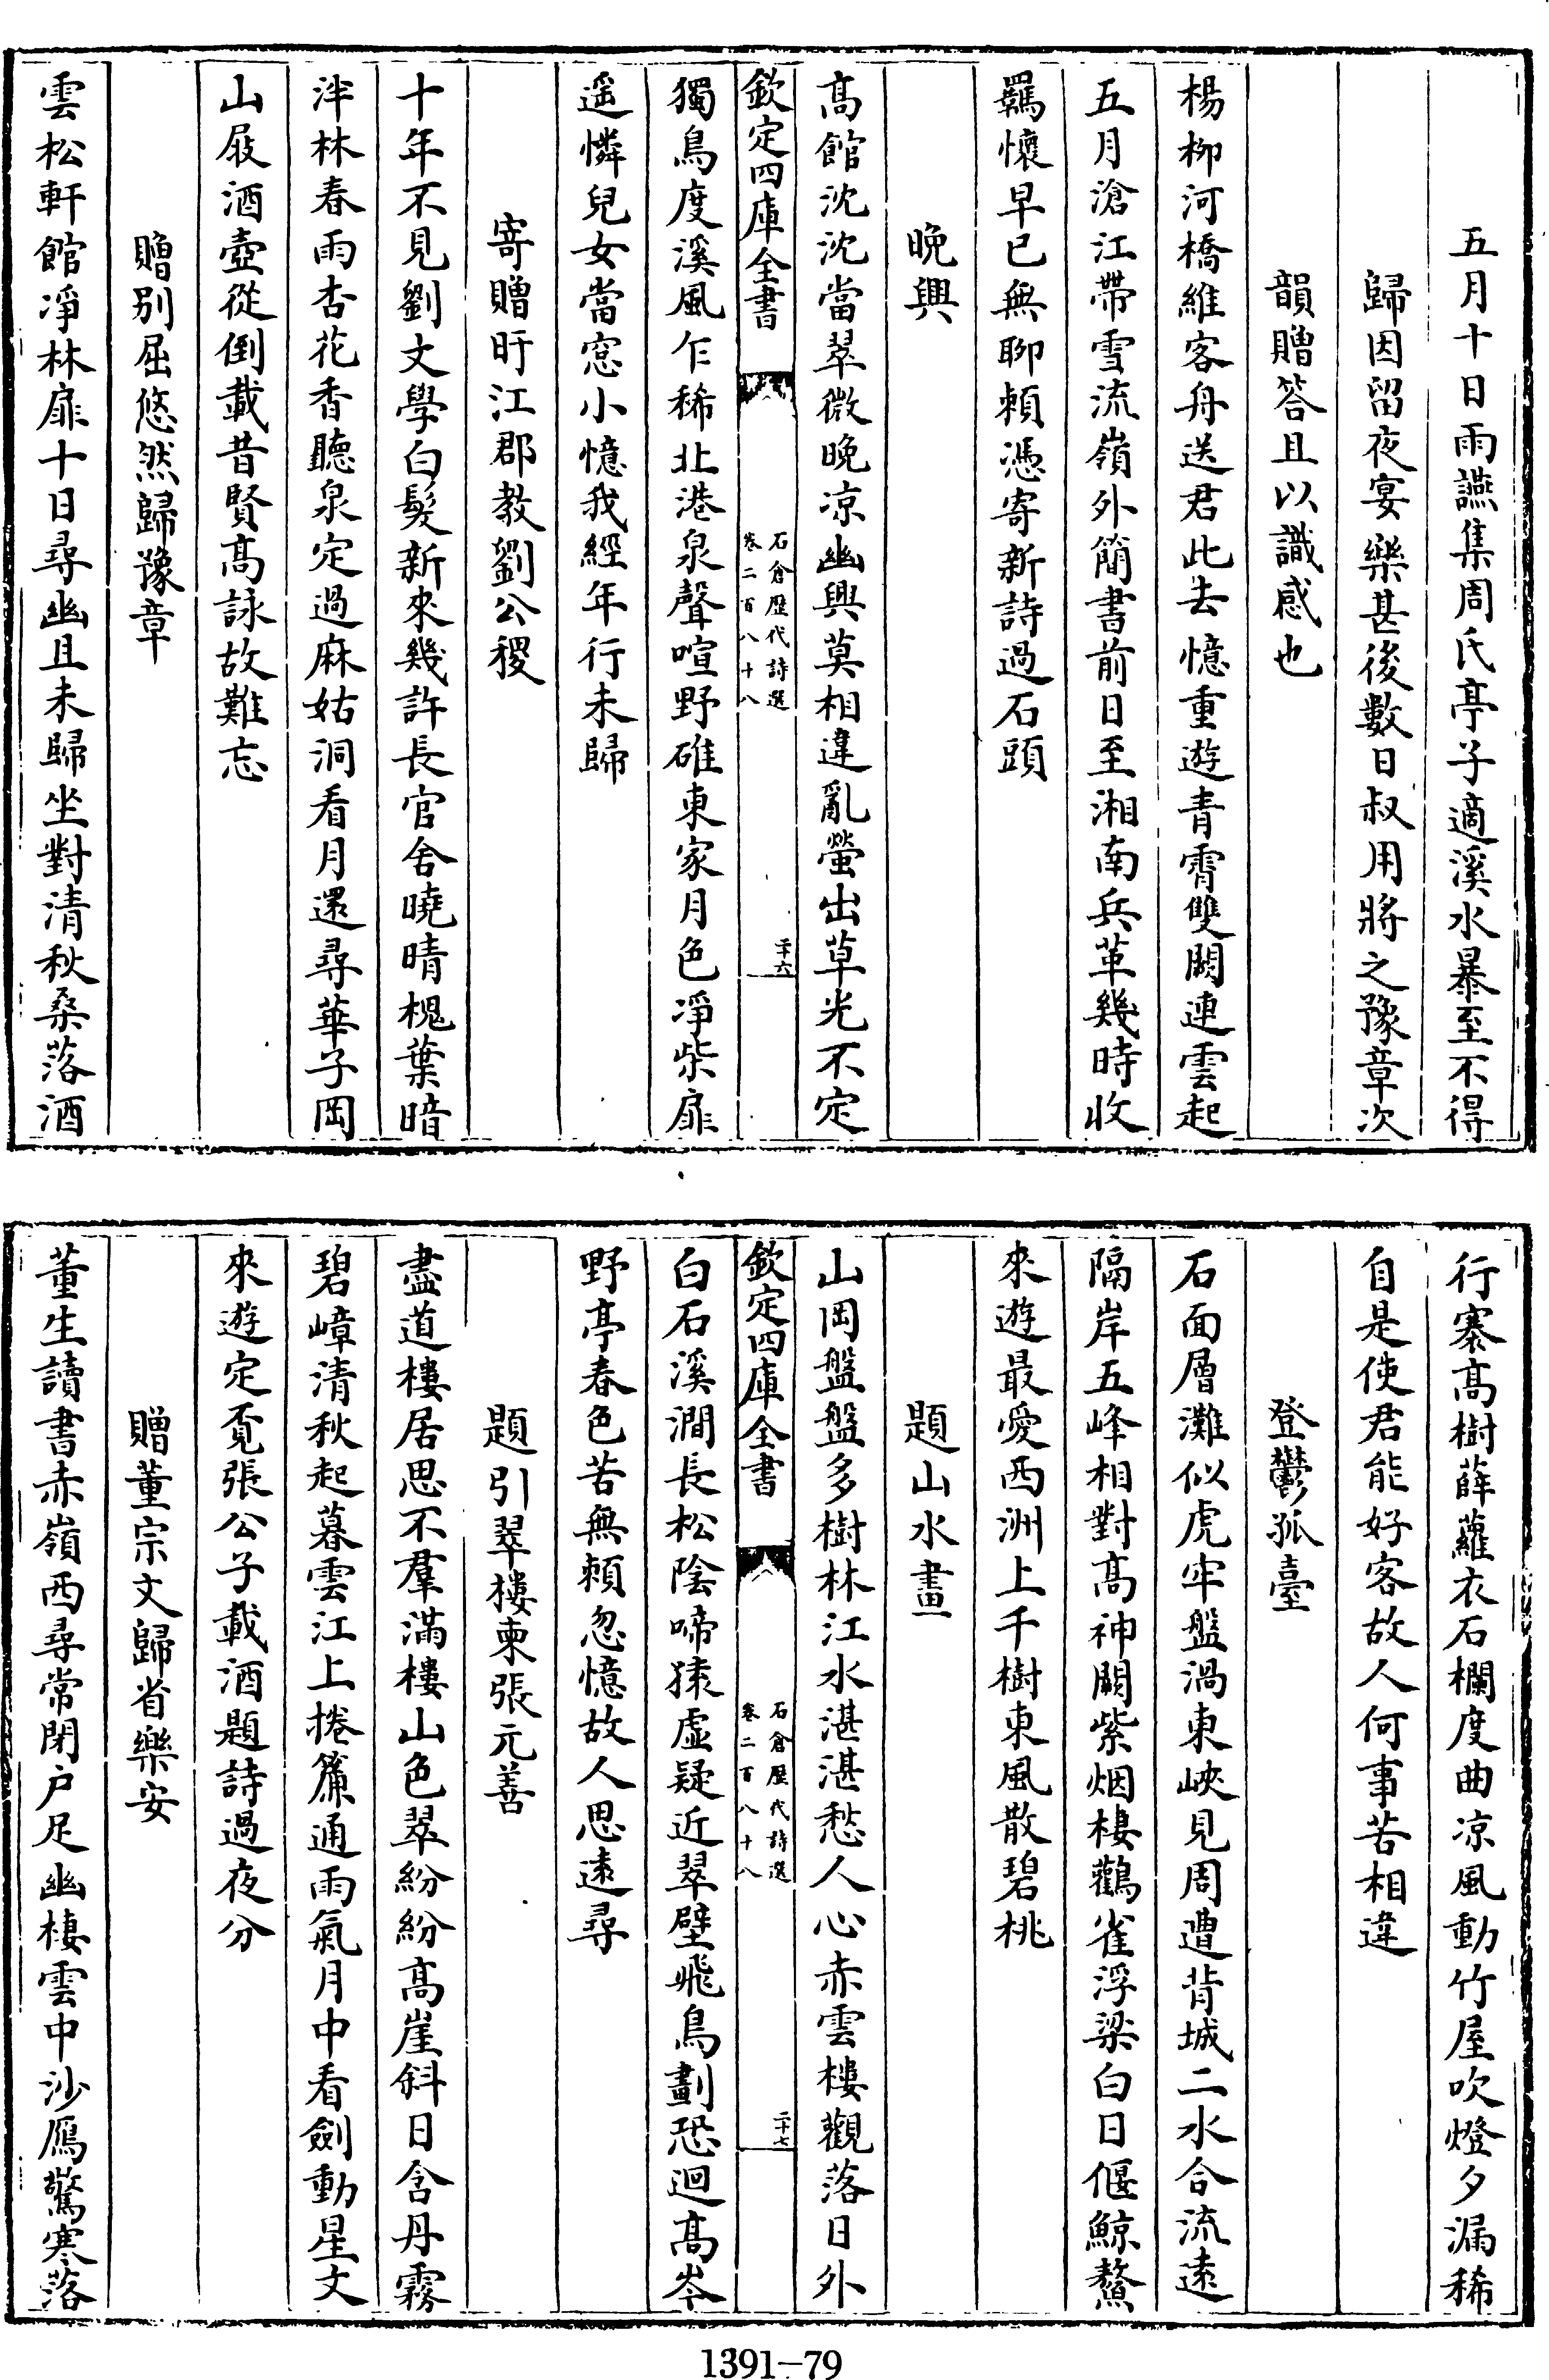 五月十日雨讌集周氏亭子適溪水暴至不得
歸因留夜宴樂甚後數日叔用將之豫章次
韻贈答且以識感也
楊柳河橋維客舟送君此去憶重遊青霄雙闕連雲起
五月滄江帶雪流嶺外簡書前日至湘南兵革幾時收
羈懷早已無聊頼憑寄新詩過石頭
晚興
髙館沈沈當翠微晚凉幽興莫相違亂螢出草光不定
欽定四庫全書
石倉歷代詩選
卷二百八十八
二十六
獨鳥度溪風乍稀北港泉聲喧野碓東家月色凈柴扉
遥憐兒女當窓小憶我經年行未歸
寄贈旴江郡教劉公稷
十年不見劉文學白髮新來幾許長官舍曉晴槐葉暗
泮林春雨杏花香聽泉定過麻姑洞看月還尋華子岡
山屐酒壺從倒載昔賢髙詠故難忘
贈别屈悠然歸豫章
雲松軒館凈林扉十日尋幽且未歸坐對清秋桑落酒
行褰髙樹薜蘿衣石欄度曲凉風動竹屋吹燈夕漏稀
自是使君能好客故人何事苦相違
登鬱孤臺
石面層灘似虎牢盤渦東峽見周遭背城二水合流逺
隔岸五峰相對髙神闕紫烟樓鸛雀浮梁白日偃鯨鰲
來遊最愛西洲上千樹東風散碧桃
題山水畫
山岡盤盤多樹林江水湛湛愁人心赤雲樓觀落日外
欽定四庫全書
石倉歷代詩選
卷二百八十八
二十七
白石溪澗長松陰啼猿虚疑近翠壁飛鳥劃恐迴髙岑
野亭春色苦無頼忽憶故人思逺尋
題引翠樓柬張元善
盡道樓居思不羣滿樓山色翠紛紛髙崖斜日含丹霧
碧嶂清秋起暮雲江上捲簾通雨氣月中看劍動星文
來遊定覔張公子載酒題詩過夜分
贈董宗文歸省樂安
董生讀書赤嶺西尋常閉户足幽棲雲中沙鴈驚寒落
1391-79